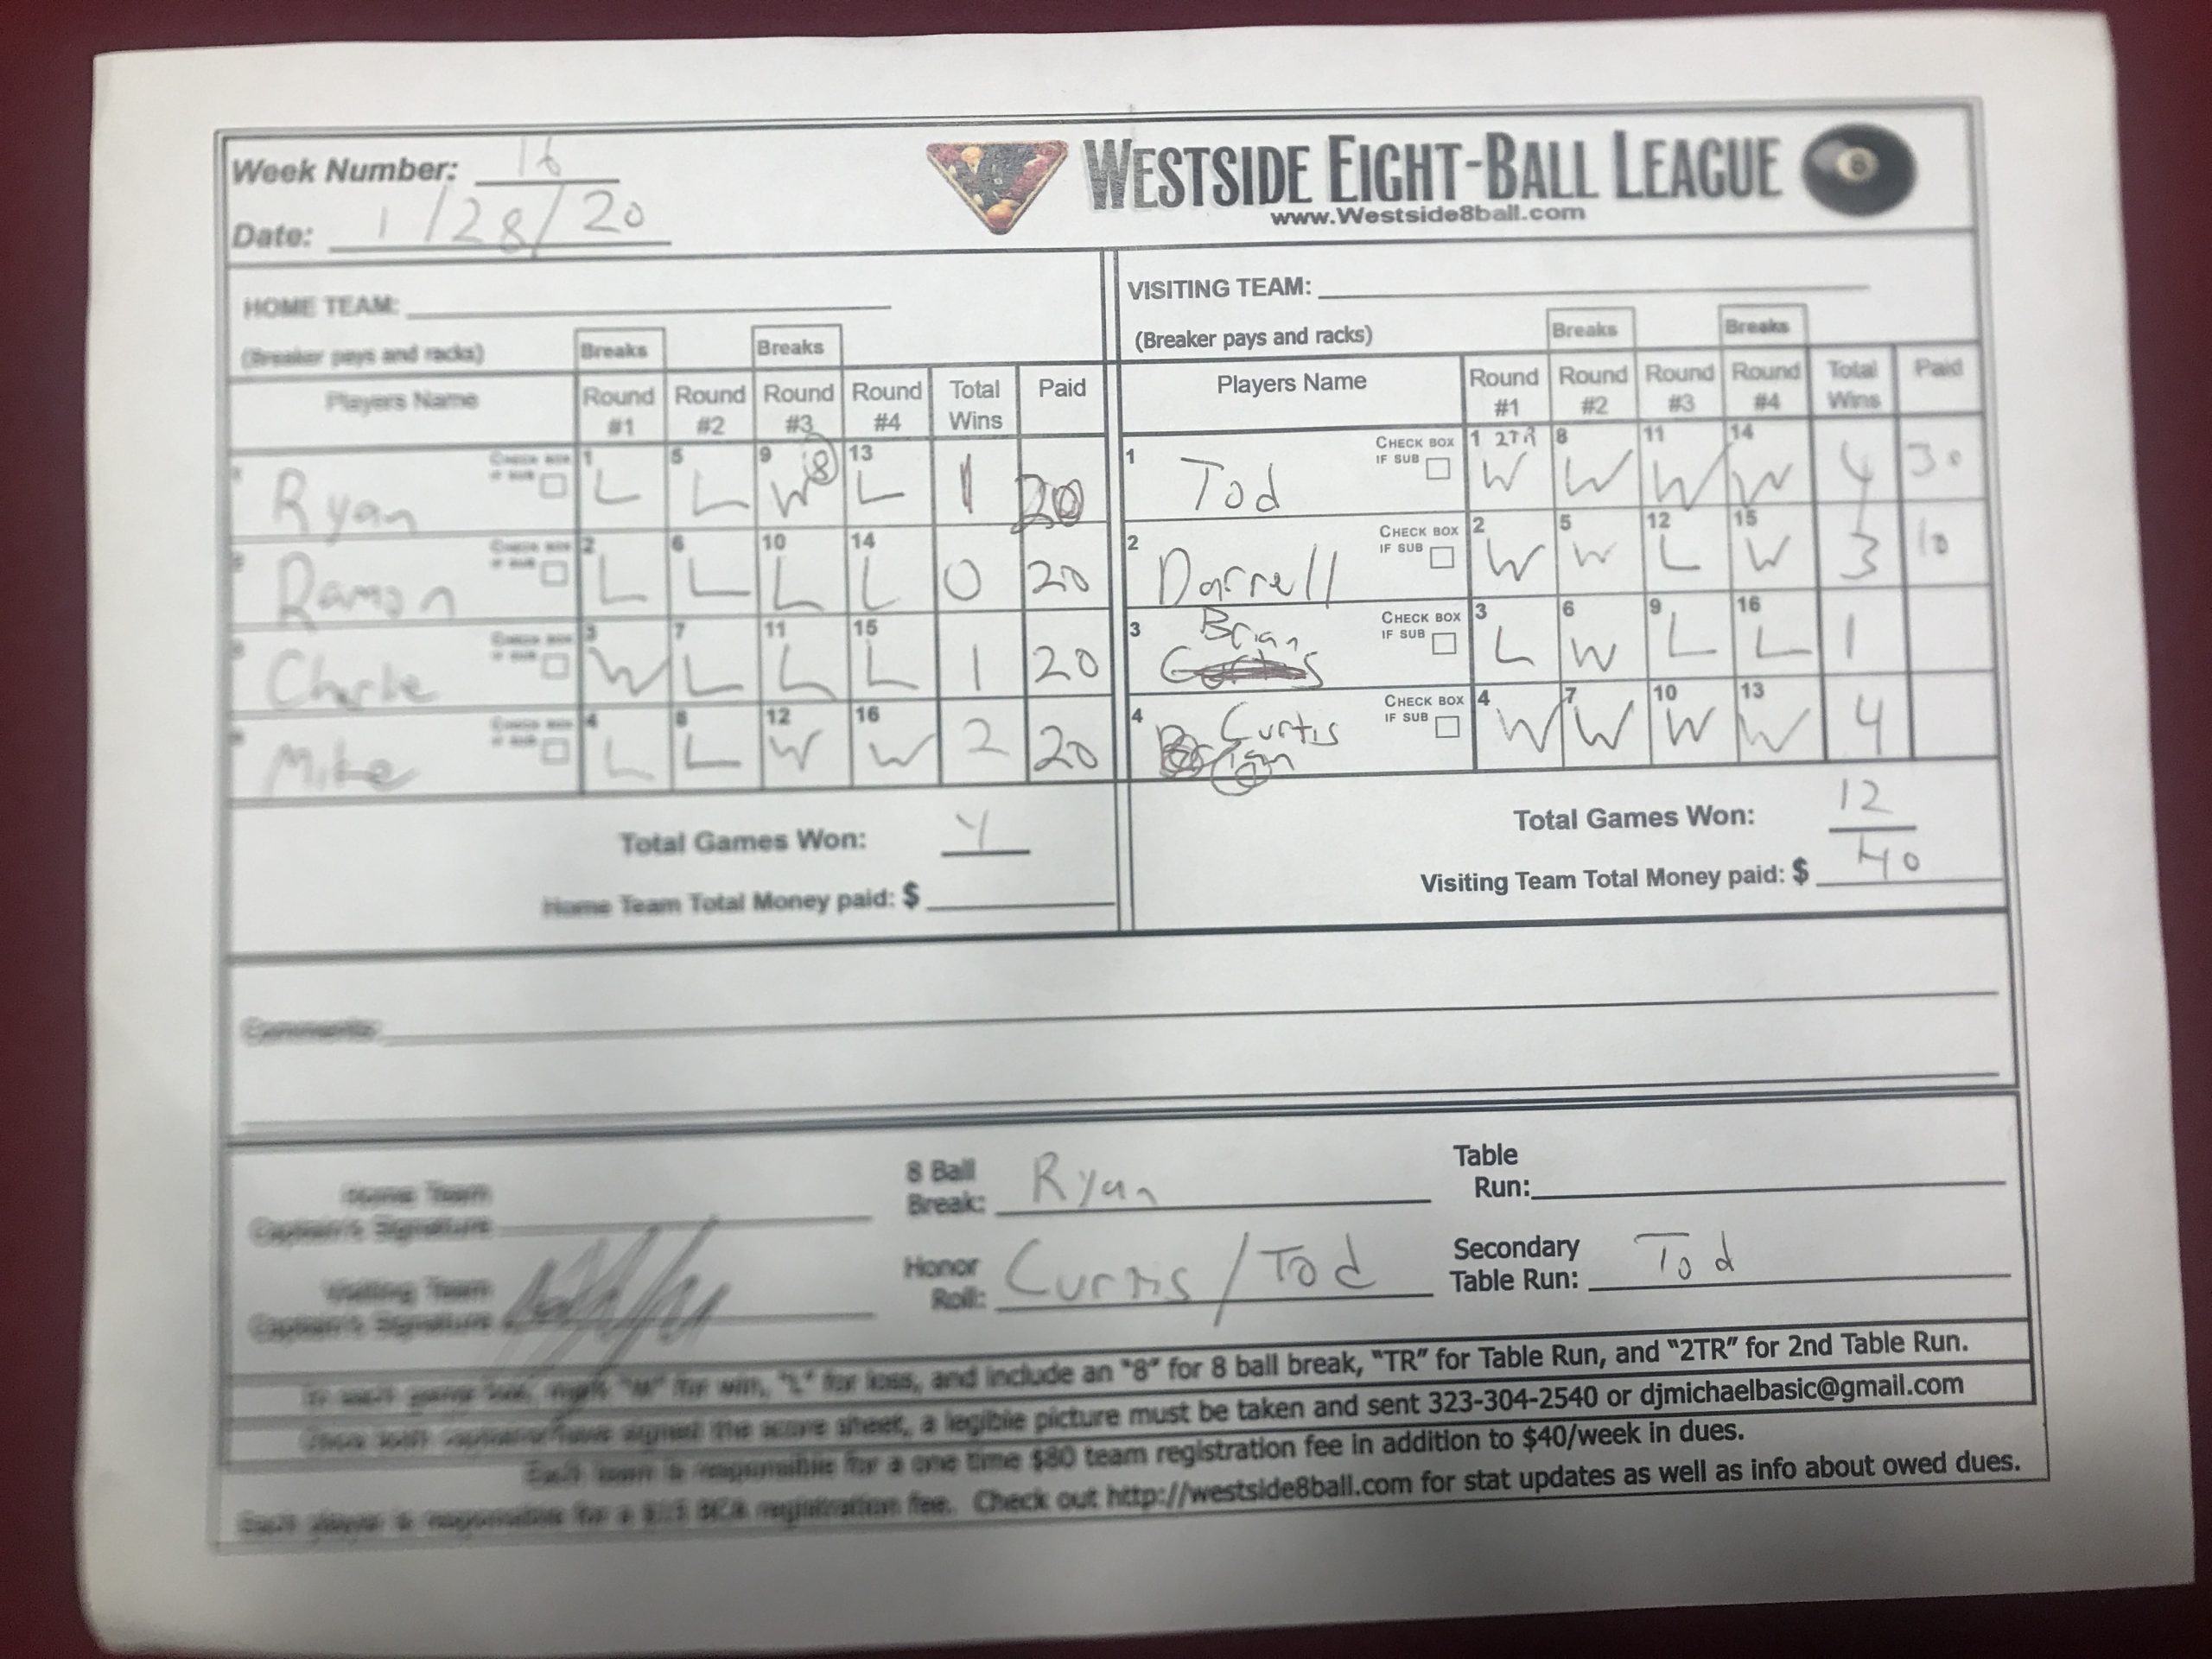 Week Number: 16
Date: 1/28/20
WESTSIDE EIGHT-BALL LEAGUE 8
www.Westside8ball.com
HOME TEAM:
(Breaker pays and racks)
Breaks Breaks
Players Name Round #1 Round #2 Round #3 Round #4 Total Wins Paid
Ryan CHECK BOX IF SUB 1 L 5 L 9 W 8 13 L 1 20
2 Ramon CHECK BOX IF SUB 2 L 6 L 10 L 14 L 0 20
3 Charlie CHECK BOX IF SUB 3 W 7 L 11 L 15 L 1 20
Mike CHECK BOX IF SUB 4 L 8 L 12 W 16 W 2 20
Total Games Won: 4
Home Team Total Money paid: $
VISITING TEAM:
(Breaker pays and racks)
Breaks Breaks
Players Name Round #1 Round #2 Round #3 Round #4 Total Wins Paid
1 Tod CHECK BOX IF SUB 1 2TR W 8 W 11 W 14 W 4 30
2 Darrell CHECK BOX IF SUB 2 W 5 W 12 L 15 W 3 10
3 Brian CHECK BOX IF SUB 3 L 6 W 9 L 16 L 1
4 Curtis CHECK BOX IF SUB 4 W 7 W 10 W 13 W 4
Total Games Won: 12
Visiting Team Total Money paid: $ 40
Comments:
Home Team
Captain's Signature
Visiting Team
Captain's Signature
8 Ball
Break: Ryan
Honor
Roll: Curtis / Tod
Table
Run:
Secondary
Table Run: Tod
mark "W" for win, "L" for loss, and include an "8" for 8 ball break, "TR" for Table Run, and "2TR" for 2nd Table Run.
Once both captains have signed the score sheet, a legible picture must be taken and sent 323-304-2540 or djmichaelbasic@gmail.com
Each team is responsible for a one time $80 team registration fee in addition to $40/week in dues.
Each player is responsible for a $15 BCA registration fee. Check out http://westside8ball.com for stat updates as well as info about owed dues.